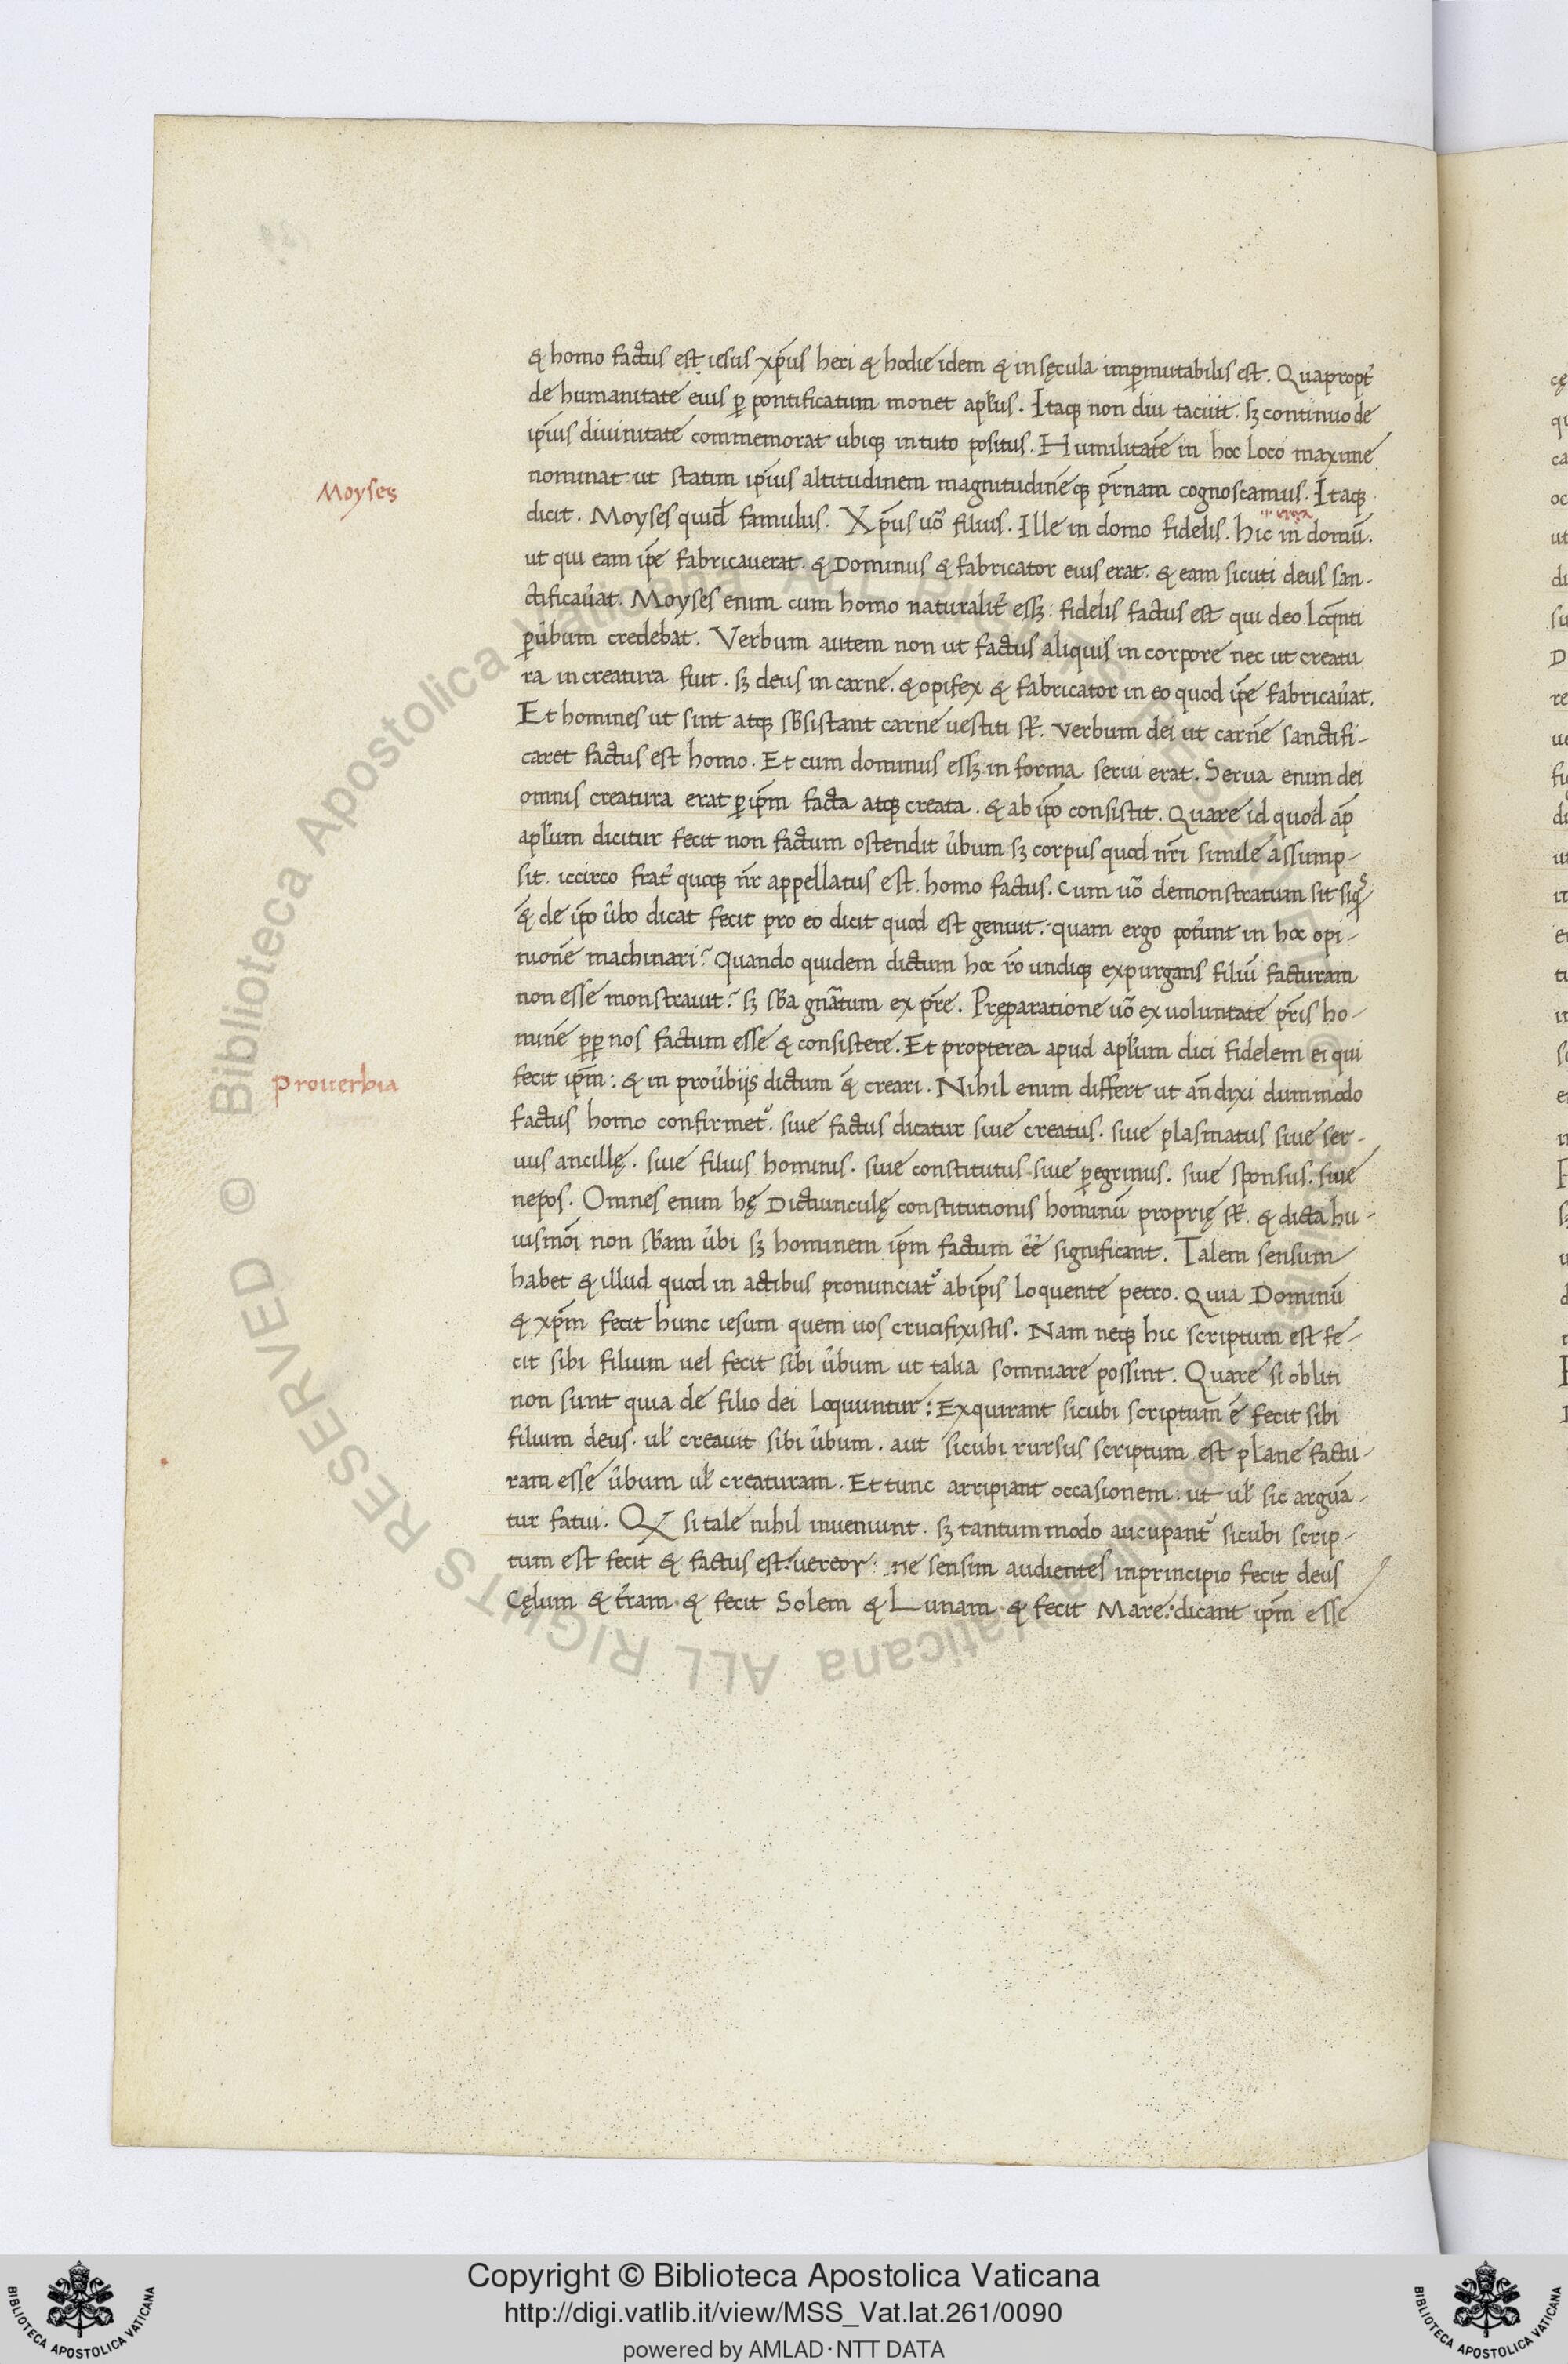 & homo factus est iesus xp̄us heri & hodie idem & in sęcula imp̄mutabilis est. Quapropt̉
de humanitate eius ꝑ pontificatum monet apl̃us. Itaqꝫ non diu tacuit. sꝫ continuo de
ip̄ius diuinitate commemorat ubiqꝫ in tuto positus. Humilitatē in hoc loco maxime
nominat ut statim ip̄ius altitudinem magnitudinēqꝫ pr̄nam cognoscamus. Itaqꝫ
Moyses
dicit. Moyses quid̃ famulus. Xp̄us uõ filius. Ille in domo fidelis. hic in domū.
ut qui eam ip̄e fabricauerat. & Dominus & fabricator eius erat. & eam sicuti deus san-
ctificau̾at. Moyses enim cum homo naturalit̉ essꝫ: fidelis factus est qui deo loq̄nti
ꝑ u̾bum credebat. Verbum autem non ut factus aliquis in corpore nec ut creatu
ra in creatura fuit. sꝫ deus in carne. & opifex & fabricator in eo quod ip̄e fabricau̾at.
Et homines ut sint atqꝫ sb̃sistant carne uestiti st̃. Verbum dei ut carnē sanctifi-
caret factus est homo. Et cum dominus essꝫ in forma serui erat. Serua enim dei
omnis creatura erat ꝑ ip̄m facta atqꝫ creata. & ab ip̄o consistit. Quare id quod ap̄
apl̃um dicitur fecit non factum ostendit u̾bum sꝫ corpus quod nr̄i simile assump-
sit. iccirco frat̉ quoqꝫ nr̄ appellatus est. homo factus. Cum uõ demonstratum sit siqͥs
& de ip̄o u̾bo dicat fecit pro eo dicit quod est genuit. quam ergo pot̉unt in hoc opi-
nionē machinari? Quando quidem dictum hoc rō undiqꝫ expurgans filiū facturam
non esse monstrauit? sꝫ sb̃a gnãtum ex pr̄e. Pręparatione uõ ex uoluntate pr̄is ho-
minē ꝓp̄ nos factum esse & consistere. Et propterea apud apl̃um dici fidelem ei qui
Prouerbia
fecit ip̄m: & in prou̾bijs dictum ē creari. Nihil enim differt ut an̄ dixi dummodo
factus homo confirmet᷑. siue factus dicatur siue creatus. siue plasmatus siue ser-
uus ancillę. siue filius hominis. siue constitutus siue ꝑegrinus. siue sponsus. siue
nepos. Omnes enim hę Dictiunculę constitutionis hominū proprię st̃. & dicta hu-
iusmōi non sb̃am u̾bi sꝫ hominem ip̄m factum ēē significant. Talem sensum
habet & illud quod in actibus pronunciat᷑ ab ip̄is loquente petro. Quia Dominū
& xp̄m fecit hunc iesum quem uos crucifixistis. Nam neqꝫ hic scriptum est fe-
cit sibi filium uel fecit sibi u̾bum ut talia somniare possint. Quare si obliti
non sunt quia de filio dei loquuntur: Exquirant sicubi scriptum ē fecit sibi
filium deus. ul̃ creauit sibi u̾bum. aut sicubi rursus scriptum est plane factu-
ram esse u̾bum ul̃ creaturam. Et tunc arripiant occasionem: ut ul̃ sic arguā-
tur fatui. Qꝫ si tale nihil inueniunt. sꝫ tantummodo aucupant᷑ sicubi scrip-
tum est fecit & factus est. uereor: ne sensim audientes in principio fecit deus
Cęlum & t̉ram & fecit Solem & Lunam & fecit Mare: dicant ip̄m esse
Copyright © Biblioteca Apostolica Vaticana
http://digi.vatlib.it/view/MSS_Vat.lat.261/0090
powered by AMLAD·NTT DATA
© Biblioteca Apostolica Vaticana ALL RIGHTS RESERVED
BIBLIOTECA APOSTOLICA VATICANA
BIBLIOTECA APOSTOLICA VATICANA